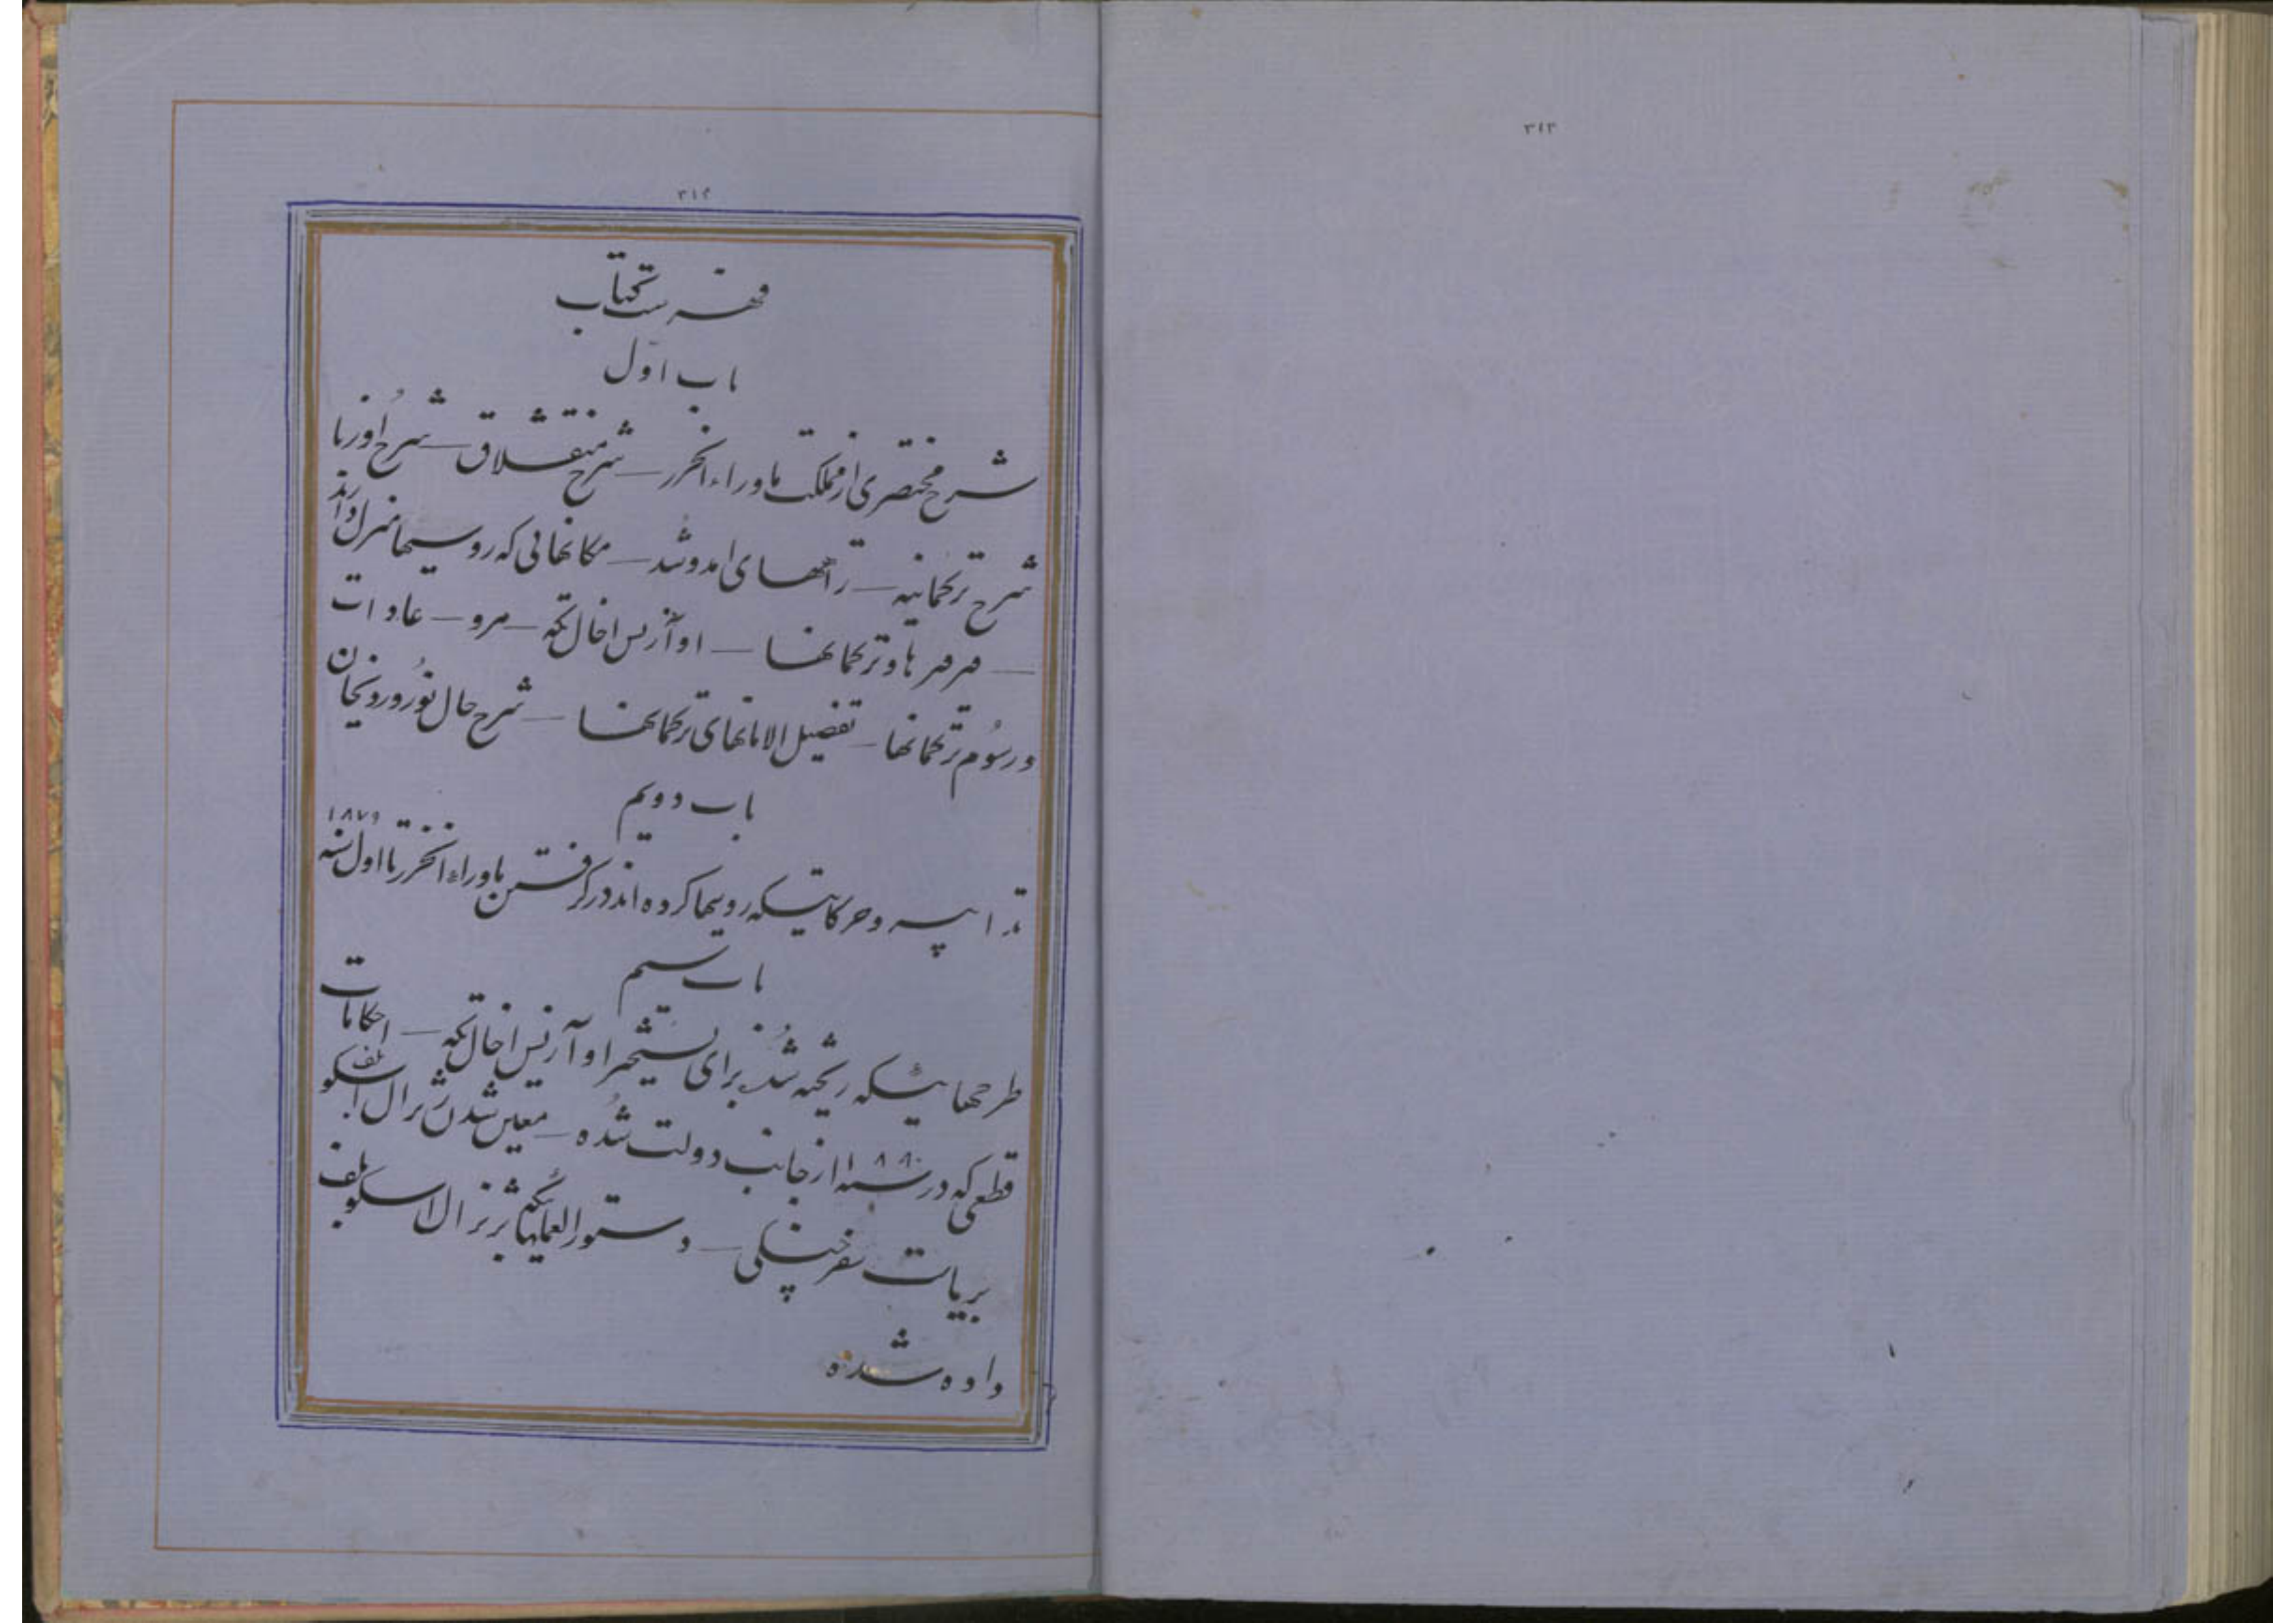 ۳۱۳
۳۱۴
فهرست کتاب
باب اوّل
شرح مختصری از مملکت ماوراء الخزر — شرح منقشلاق — شرح اوزبا
شرح ترکمانیه — راههای امدوشد — مکانهائی که روسیها منزل دارند
— قرقرها و ترکمانها — اوآزیس اخال تکه — مرو — عادات
و رسوم ترکمانها — تفصیل الامانهای ترکمانها — شرح حال نوروروزنجان
باب دویم
تدابیر و حرکاتیکه روسیها کرده اند در گرفتن ماوراء الخزر تا اول سنه ۱۸۷۹
باب سیم
طرحهائیکه ریخته شد برای تسخیر اوآزیس اخال تکه — احکامات
قطعی که در سنه ۱۸۸۰ از جانب دولت شده — معین شدن ژنرال اسکوبلف
بریاست سفر جنگی — دستورالعملهائیکه بژنرال اسکوبلف
داده شده